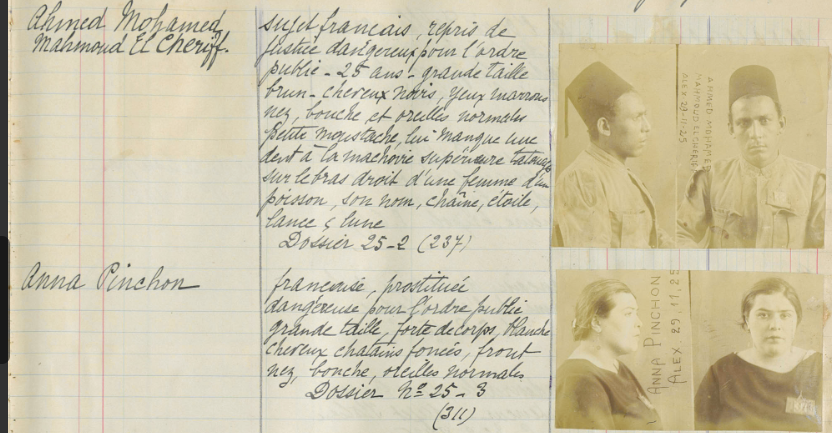 Ahmed Mohamed
Mahmoud El Cheriff.
sujet francais, repris de
justice dangereux pour l'ordre
public - 25 ans - grande taille
brun - cheveux noirs, yeux marrons
nez, bouche et oreilles normales
petite moustache, lui manque une
dent à la machoire supérieure tatouage
sur le bras droit d'une femme d'un
poisson, son nom, chaîne, étoile,
lance & lune
Dossier 25-2 (237)
AHMED MOHAMED
MAHMOUD EL CHERIFF
ALEX 29-11-25
Anna Pinchon
francaise, prostituée
dangereuse pour l'ordre public
grande taille, forte de corps, blanche
cheveux chatains foncés, front
nez, bouche, oreilles normales
Dossier No 25-3
(311)
ANNA PINCHON
ALEX. 29, 11, 25